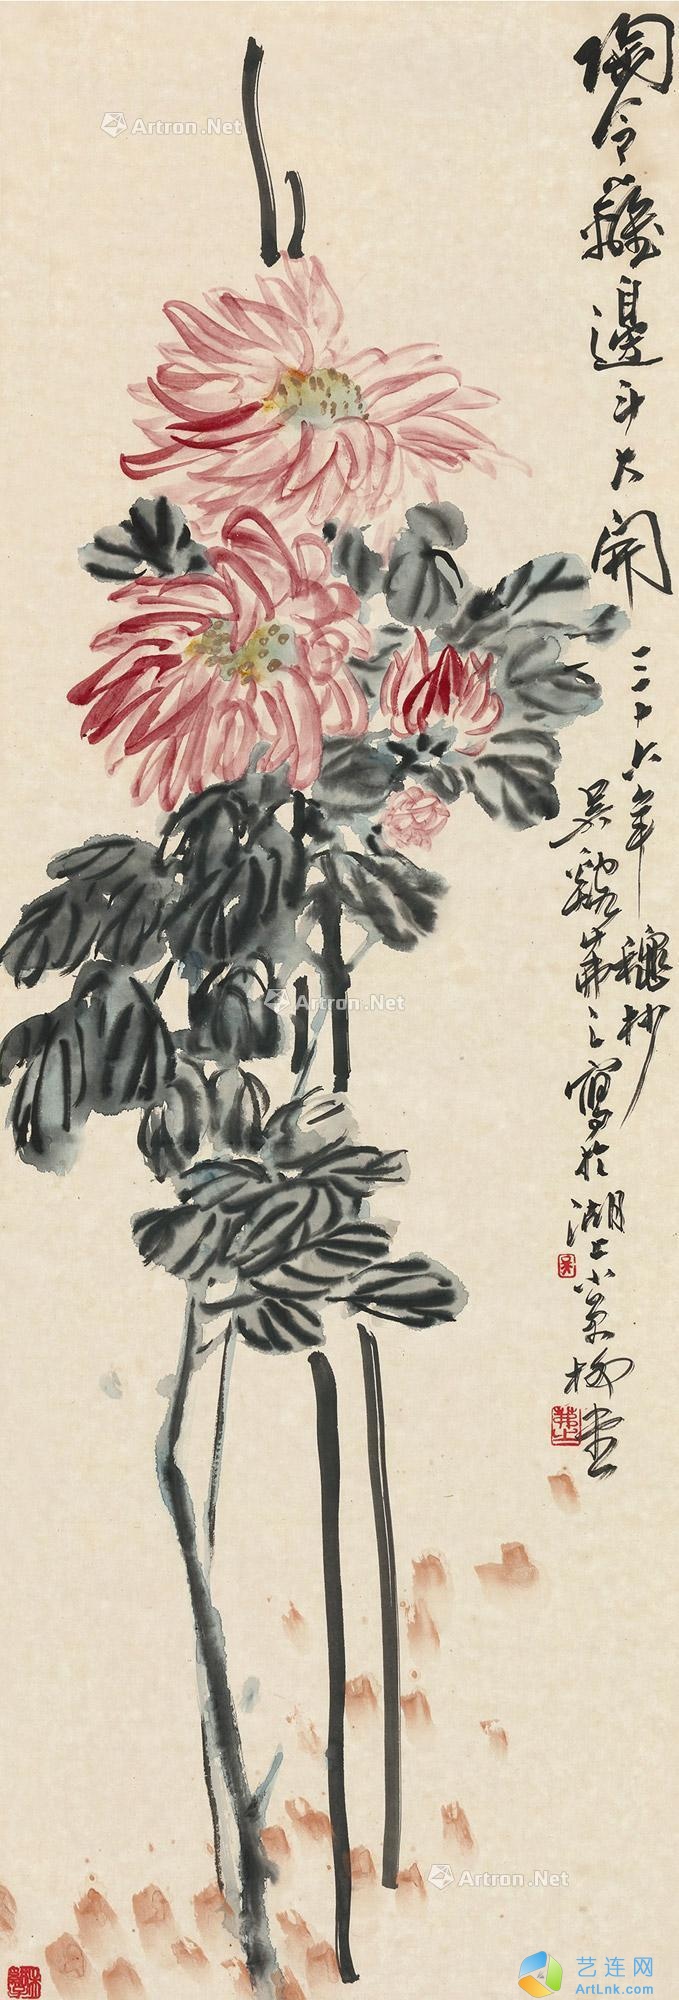 陶令籬邊斗大開
三十六年穐杪
吴谿茀之寫於湖上小景柳堂
吴
茀之
Artron.Net
Artron.Net
Artron.Net
艺连网
ArtLnk.com